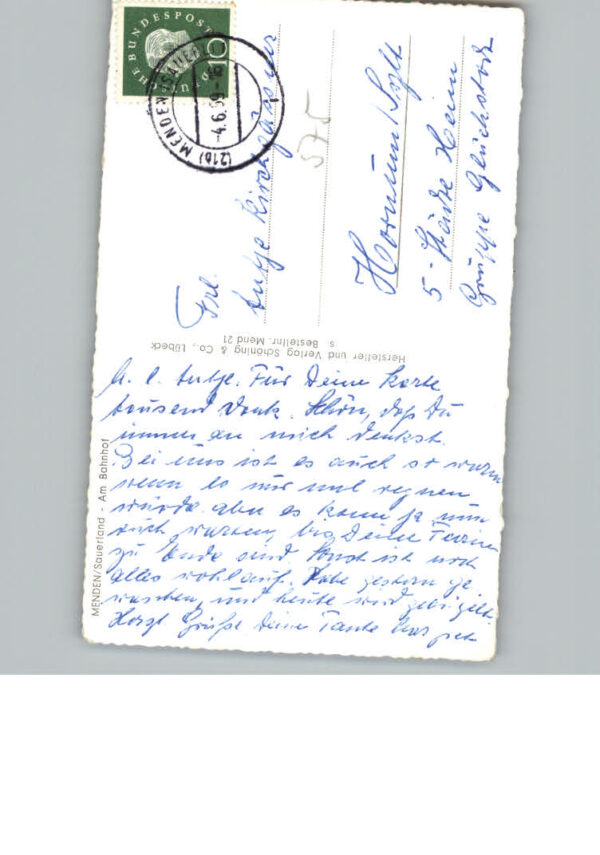 DEUTSCHE BUNDESPOST
10
MENDEN (SAUERL)
-4.6.59-16
(21b)
Frl.
Antje Kirchgässner
575
Hörnum/Sylt
5-Städte Heim
Gruppe Glückstadt
Hersteller und Verlag Schöning & Co., Lübeck
s Bestellnr. Mend 21
MENDEN/Sauerland - Am Bahnhof
M. l. Antje. Für Deine Karte
tausend Dank. Schön, daß Du
immer an mich denkst.
Bei uns ist es auch so warm
wenn es nur mal regnen
würde. aber es kann ja nun
auch warten, bis Deine Ferien
zu Ende sind. Sonst ist noch
alles wohlauf. Habe gestern ge
waschen, und heute wird gebügelt.
Herzl Grüße Deine Tante